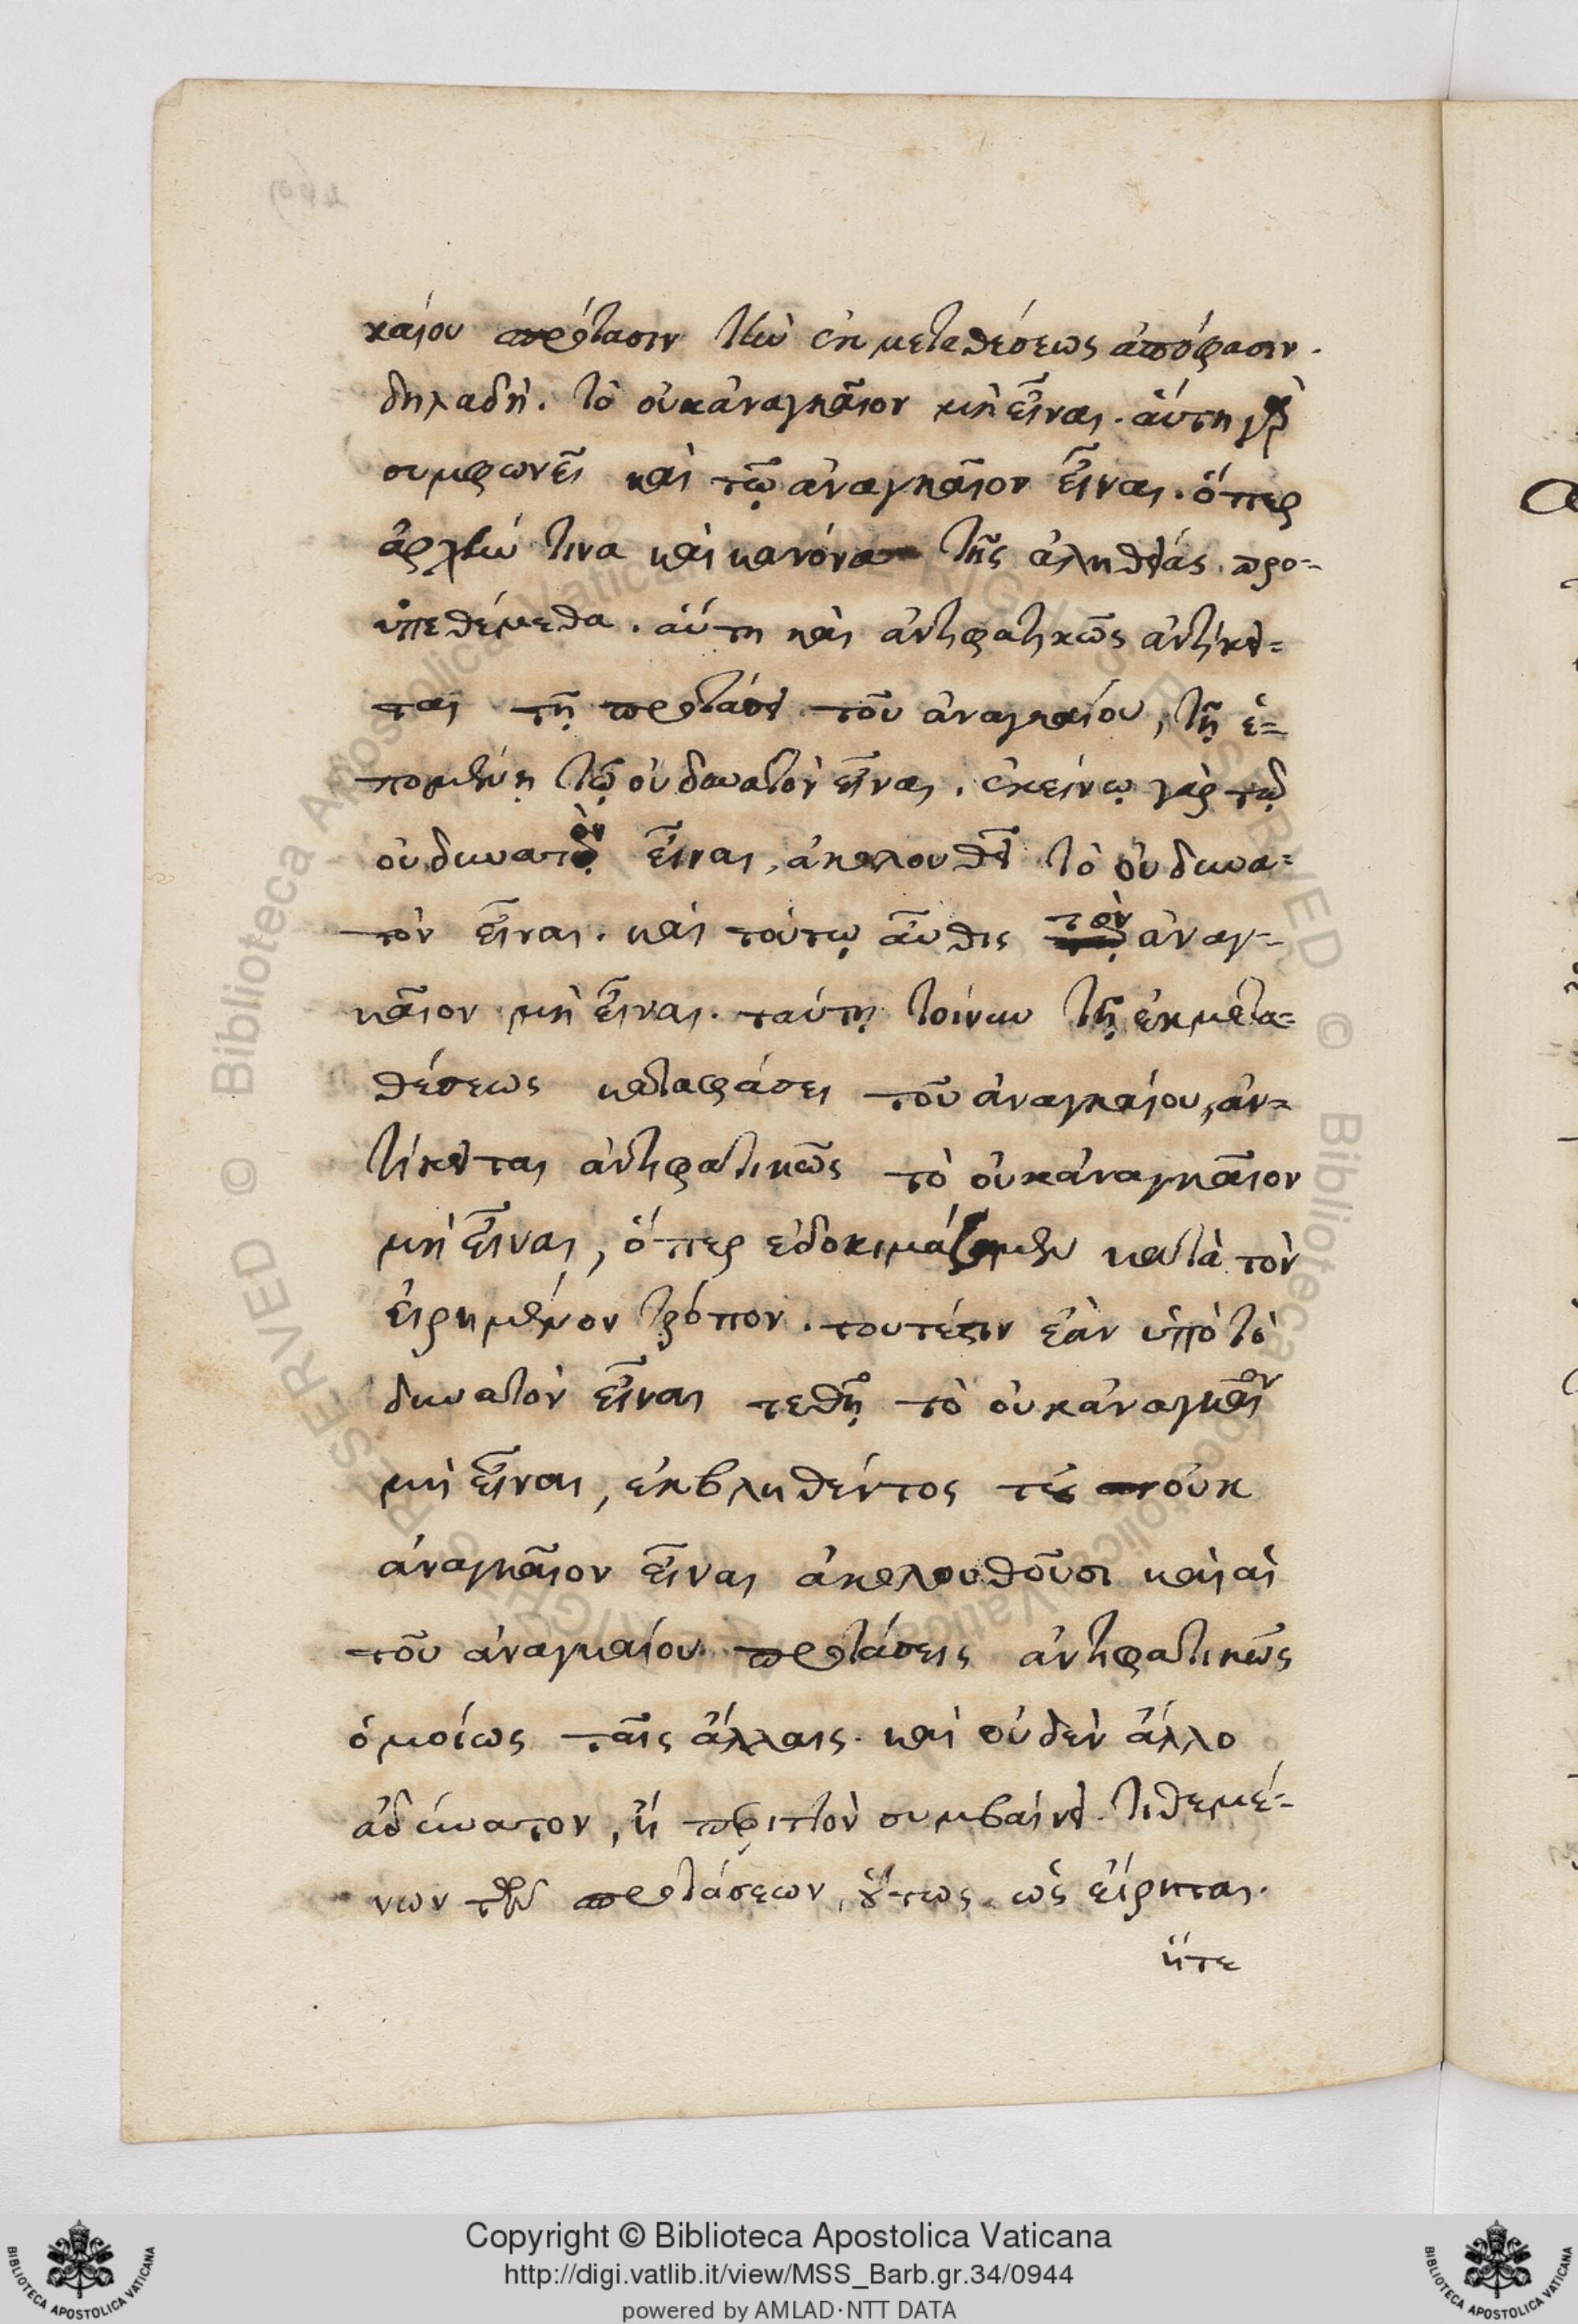 καίου πρότασιν τὴν ἐκ μεταθέσεως ἀπόφασιν.
δηλαδὴ. τὸ οὐκ ἀναγκαῖον μὴ εἶναι. αὕτη γὰρ
συμφωνεῖ καὶ τῷ ἀναγκαῖον εἶναι. ὅπερ
ἀρχήν τινα καὶ κανόνα τῆς ἀληθείας προ-
ϋπεθέμεθα. αὕτη καὶ ἀντιφατικῶς ἀντίκει-
ται τῇ προτάσει τοῦ ἀναγκαίου, τῇ ἑ-
πομένῃ τῷ οὐ δυνατὸν εἶναι. ἐκείνῳ γὰρ τῷ
οὐ δυνατὸν εἶναι, ἀκολουθεῖ τὸ οὐ δυνα-
τὸν εἶναι. καὶ τούτῳ αὖθις τὸν ἀναγ-
καῖον μὴ εἶναι. ταύτῃ τοίνυν τῇ ἐκ μετα-
θέσεως καταφάσει τοῦ ἀναγκαίου, ἀν-
τίκειται ἀντιφατικῶς τὸ οὐκ ἀναγκαῖον
μὴ εἶναι, ὅπερ ἐδοκιμάζομεν κατὰ τὸν
εἰρημένον τρόπον. τουτέστιν ἐὰν ὑπὸ τὸ
δυνατὸν εἶναι τεθῇ τὸ οὐκ ἀναγκαῖον
μὴ εἶναι, ἐκβληθέντος τοῦ οὐκ
ἀναγκαῖον εἶναι ἀκολουθοῦσι καὶ αἱ
τοῦ ἀναγκαίου προτάσεις ἀντιφατικῶς
ὁμοίως ταῖς ἄλλαις. καὶ οὐδὲν ἄλλο
ἀδύνατον, ἢ περιττὸν συμβαίνει. τιθεμέ-
νων τῶν προτάσεων, οὕτως ὡς εἴρηται.
ἥτε
Copyright © Biblioteca Apostolica Vaticana
http://digi.vatlib.it/view/MSS_Barb.gr.34/0944
powered by AMLAD·NTT DATA